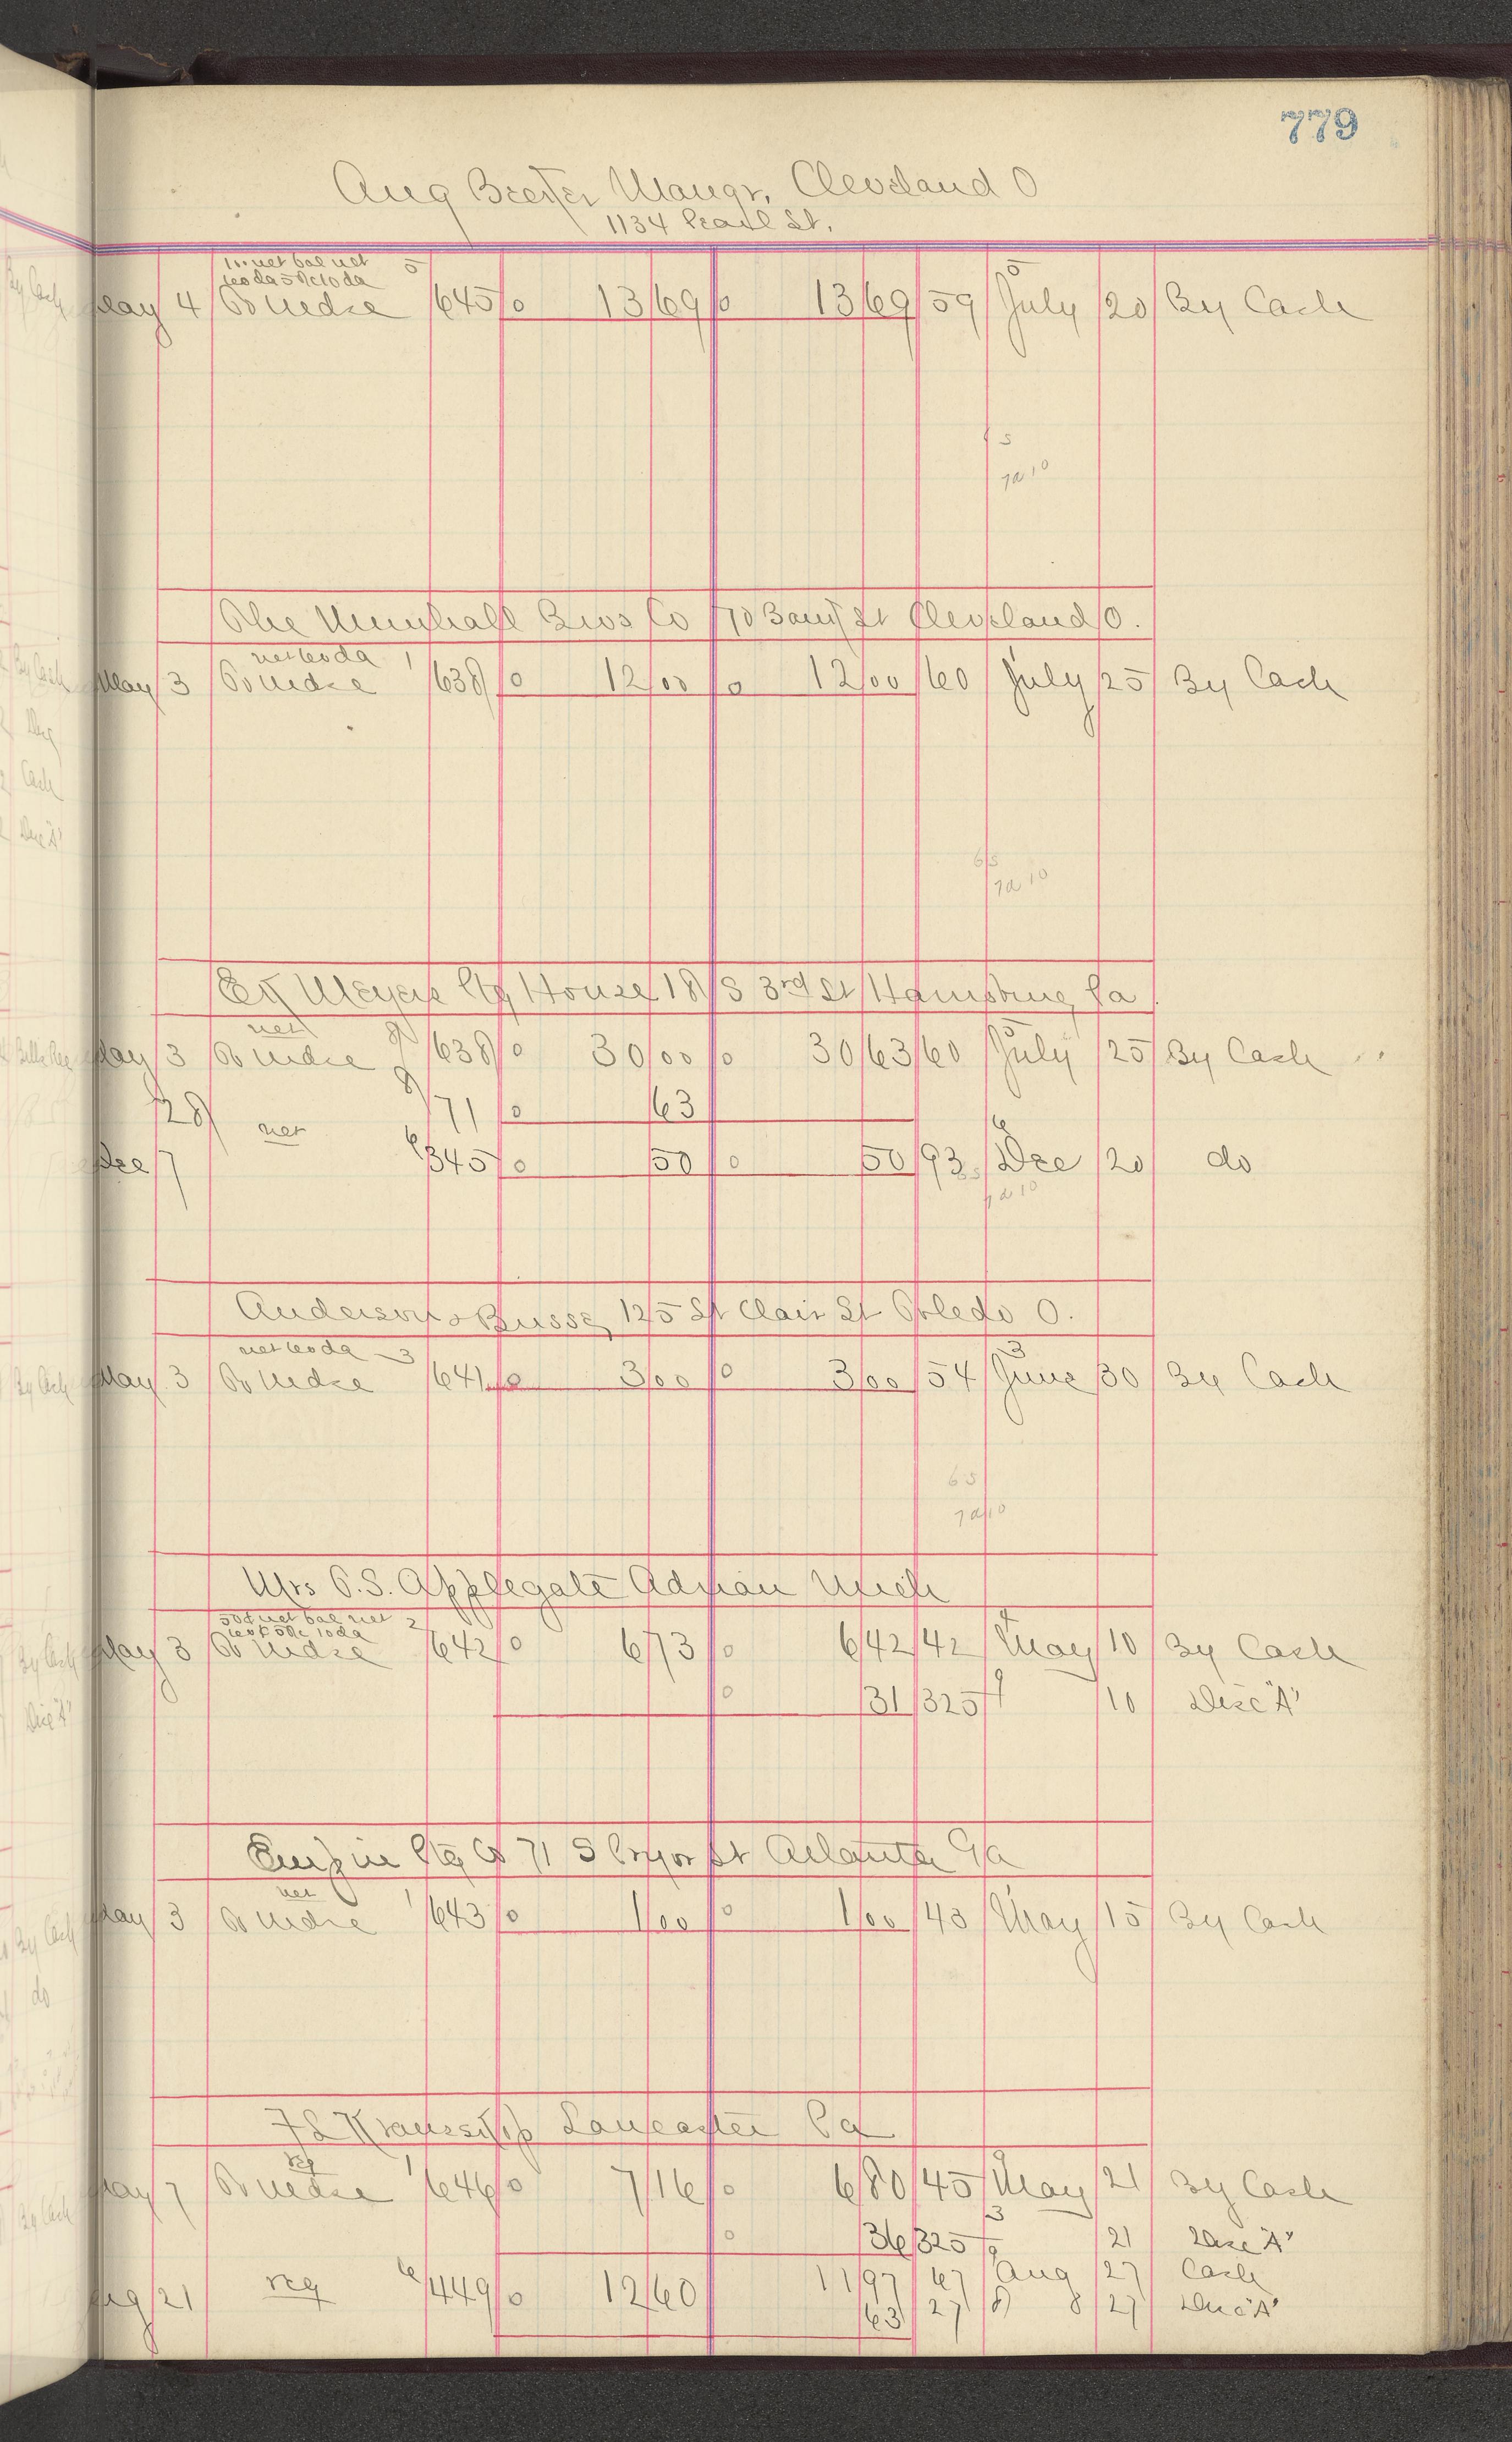 779
Aug Mangr, Cleveland O
1134 Pearl St.
net bal net 5
60 da 5% 10 da 5
May 4 To Mdse 645 0 13 69 0 13 69 59 July 20 By Cash
7a 10
The Bros Co 70 St Cleveland O.
net 60 da 1
May 3 To Mdse 638 0 12 00 0 12 00 60 July 25 By Cash
65
7a 10
Meyers Clg House 18 S 3rd St Harrisburg Pa
net 8 5
May 3 To Mdse 638 0 30 00 0 30 63 60 July 25 By Cash
28 8 71 0 63
net 6 6
Dec 7 345 0 50 0 50 93 Dec 20 do
7a 10
Anderson & Busse, 125 St Clair St Toledo O.
net 60 da 3 3
May 3 To Mdse 641 0 3 00 0 3 00 54 June 30 By Cash
65
7a 10
Mrs O.S. Applegate Adrian Mich
50¢ net bal net 2
5% 10 da
May 3 To Mdse 642 0 6 73 0 6 42 42 May 10 By Cash
0 31 325 9 10 Disc "A"
Empire Clg Co 71 S Pryor St Atlanta Ga
net 1
May 3 To Mdse 643 0 1 00 0 1 00 43 May 15 By Cash
Lancaster Pa
reg 1
May 7 To Mdse 646 0 7 16 0 6 80 45 May 21 By Cash
0 36 325 21 Disc "A"
Aug 21 reg 6 449 0 12 60 11 97 67 Aug 27 Cash
63 27 8 27 Disc "A"